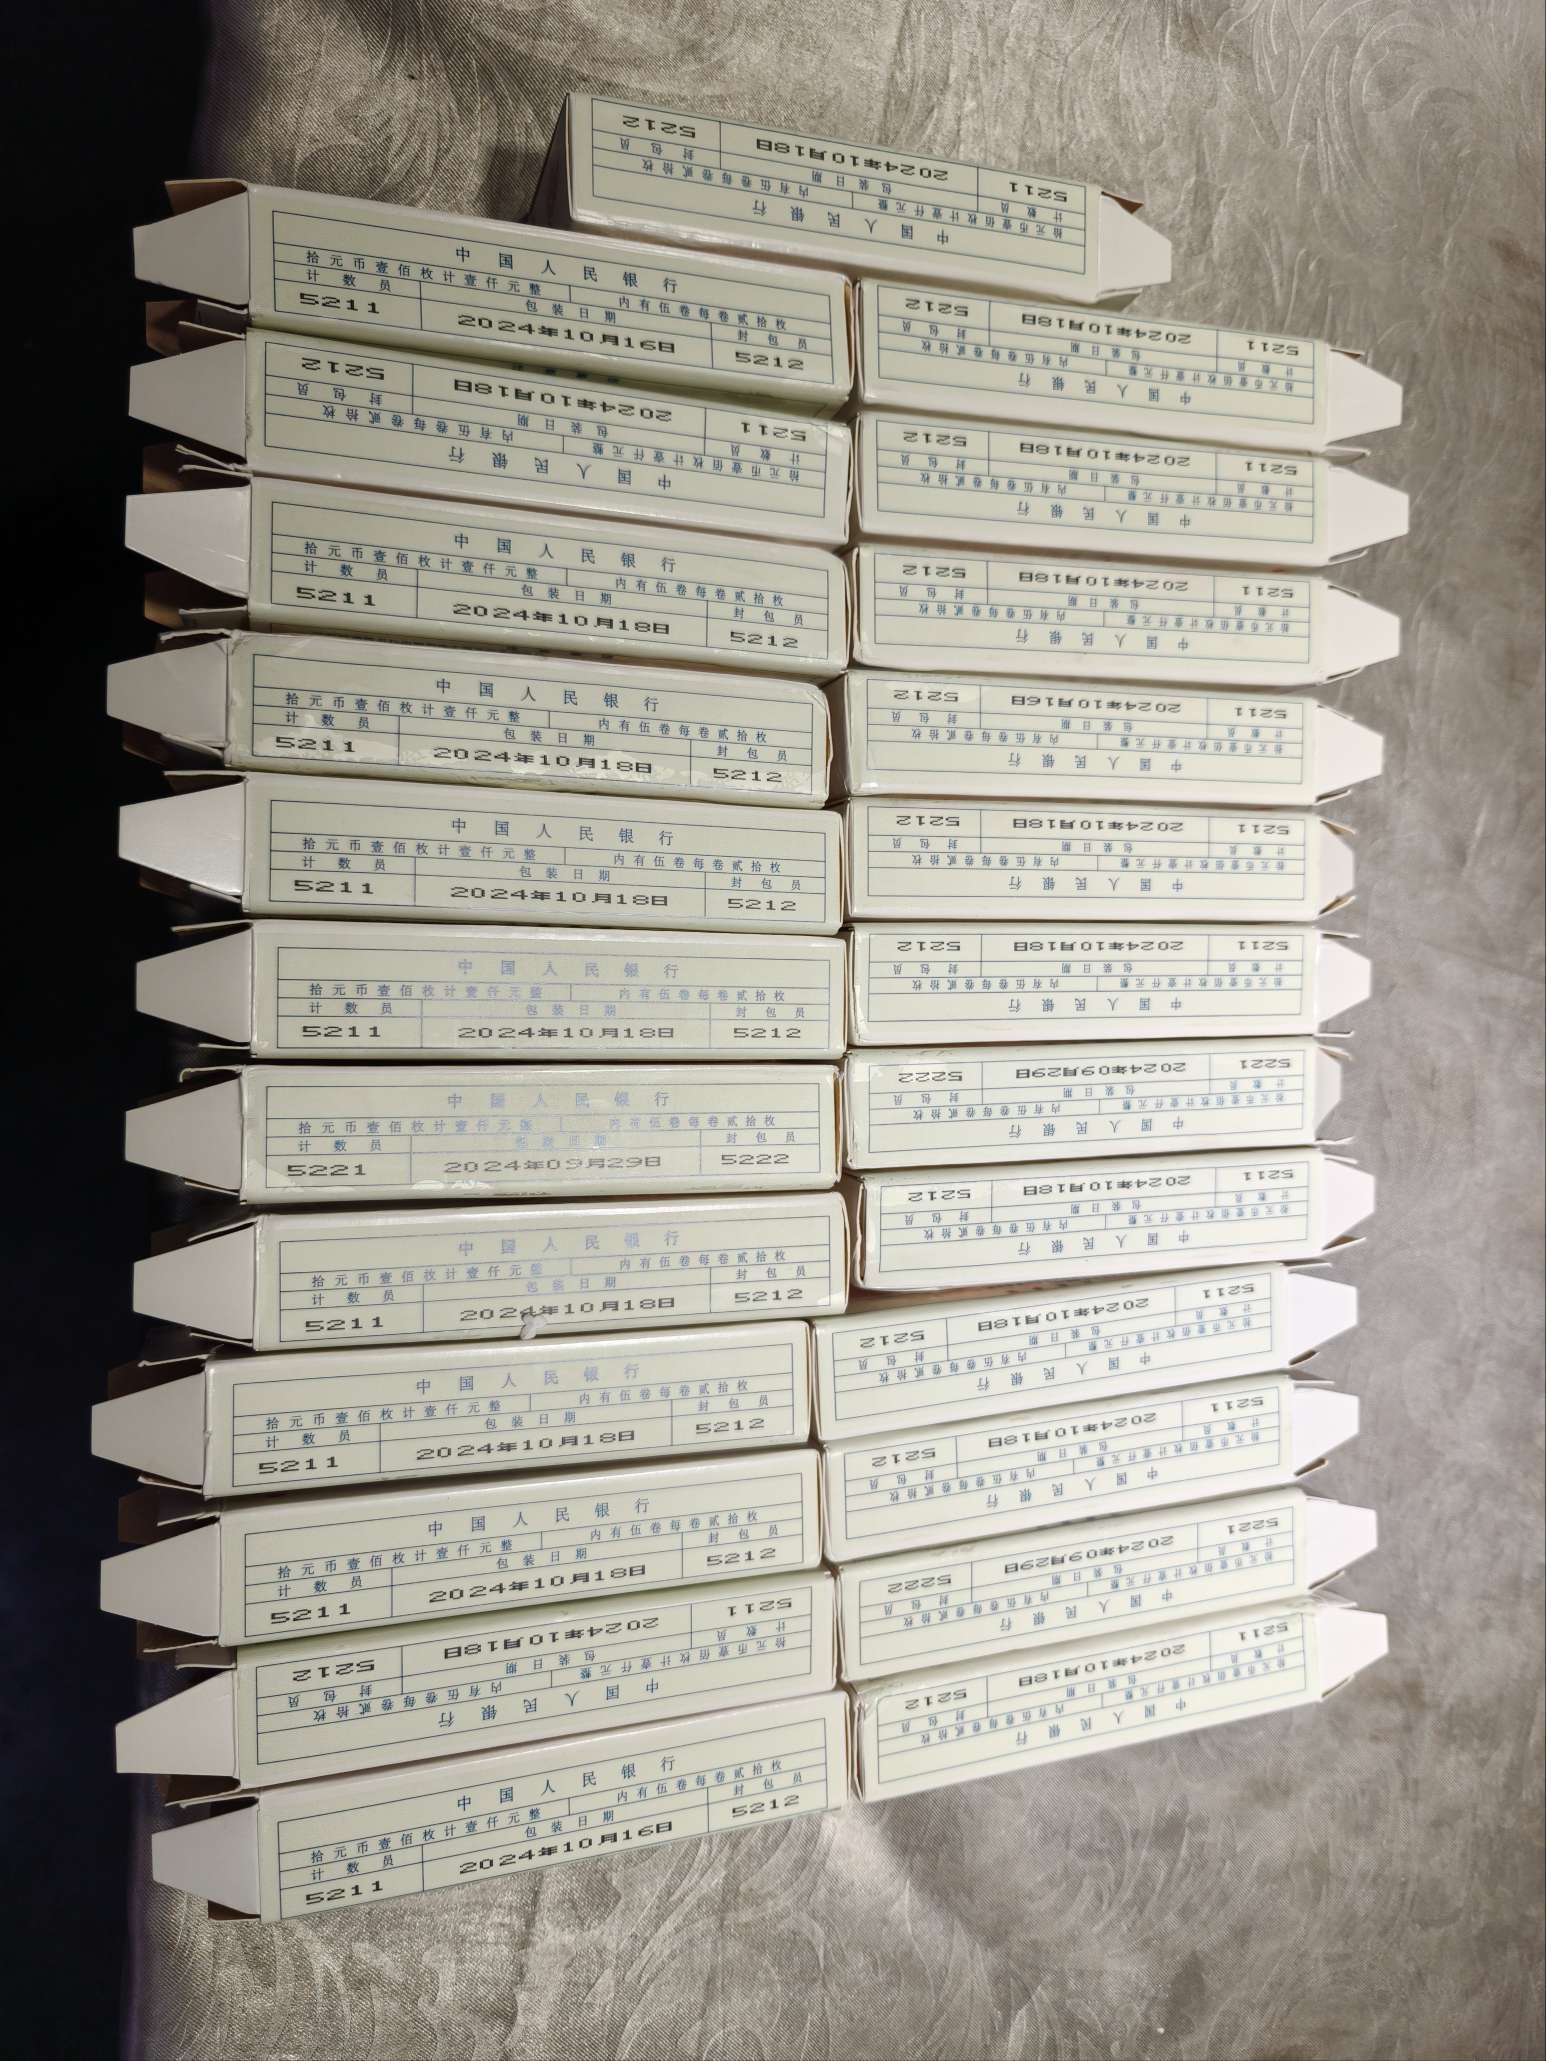 中国人民银行
拾元币壹佰枚计壹仟元整 内有伍卷每卷贰拾枚
计数员 包装日期 封包员
5211 2024年10月18日 5212
中国人民银行
拾元币壹佰枚计壹仟元整 内有伍卷每卷贰拾枚
计数员 包装日期 封包员
5211 2024年10月16日 5212
中国人民银行
拾元币壹佰枚计壹仟元整 内有伍卷每卷贰拾枚
计数员 包装日期 封包员
5211 2024年10月18日 5212
中国人民银行
拾元币壹佰枚计壹仟元整 内有伍卷每卷贰拾枚
计数员 包装日期 封包员
5211 2024年10月18日 5212
中国人民银行
拾元币壹佰枚计壹仟元整 内有伍卷每卷贰拾枚
计数员 包装日期 封包员
5211 2024年10月18日 5212
中国人民银行
拾元币壹佰枚计壹仟元整 内有伍卷每卷贰拾枚
计数员 包装日期 封包员
5211 2024年10月18日 5212
中国人民银行
拾元币壹佰枚计壹仟元整 内有伍卷每卷贰拾枚
计数员 包装日期 封包员
5211 2024年10月18日 5212
中国人民银行
拾元币壹佰枚计壹仟元整 内有伍卷每卷贰拾枚
计数员 包装日期 封包员
5221 2024年09月29日 5222
中国人民银行
拾元币壹佰枚计壹仟元整 内有伍卷每卷贰拾枚
计数员 包装日期 封包员
5211 2024年10月18日 5212
中国人民银行
拾元币壹佰枚计壹仟元整 内有伍卷每卷贰拾枚
计数员 包装日期 封包员
5211 2024年10月18日 5212
中国人民银行
拾元币壹佰枚计壹仟元整 内有伍卷每卷贰拾枚
计数员 包装日期 封包员
5211 2024年10月18日 5212
中国人民银行
拾元币壹佰枚计壹仟元整 内有伍卷每卷贰拾枚
计数员 包装日期 封包员
5211 2024年10月18日 5212
中国人民银行
拾元币壹佰枚计壹仟元整 内有伍卷每卷贰拾枚
计数员 包装日期 封包员
5211 2024年10月16日 5212
中国人民银行
拾元币壹佰枚计壹仟元整 内有伍卷每卷贰拾枚
计数员 包装日期 封包员
5211 2024年10月18日 5212
中国人民银行
拾元币壹佰枚计壹仟元整 内有伍卷每卷贰拾枚
计数员 包装日期 封包员
5211 2024年10月18日 5212
中国人民银行
拾元币壹佰枚计壹仟元整 内有伍卷每卷贰拾枚
计数员 包装日期 封包员
5211 2024年10月18日 5212
中国人民银行
拾元币壹佰枚计壹仟元整 内有伍卷每卷贰拾枚
计数员 包装日期 封包员
5211 2024年10月16日 5212
中国人民银行
拾元币壹佰枚计壹仟元整 内有伍卷每卷贰拾枚
计数员 包装日期 封包员
5211 2024年10月18日 5212
中国人民银行
拾元币壹佰枚计壹仟元整 内有伍卷每卷贰拾枚
计数员 包装日期 封包员
5211 2024年10月18日 5212
中国人民银行
拾元币壹佰枚计壹仟元整 内有伍卷每卷贰拾枚
计数员 包装日期 封包员
5221 2024年09月29日 5222
中国人民银行
拾元币壹佰枚计壹仟元整 内有伍卷每卷贰拾枚
计数员 包装日期 封包员
5211 2024年10月18日 5212
中国人民银行
拾元币壹佰枚计壹仟元整 内有伍卷每卷贰拾枚
计数员 包装日期 封包员
5211 2024年10月18日 5212
中国人民银行
拾元币壹佰枚计壹仟元整 内有伍卷每卷贰拾枚
计数员 包装日期 封包员
5211 2024年10月18日 5212
中国人民银行
拾元币壹佰枚计壹仟元整 内有伍卷每卷贰拾枚
计数员 包装日期 封包员
5221 2024年09月29日 5222
中国人民银行
拾元币壹佰枚计壹仟元整 内有伍卷每卷贰拾枚
计数员 包装日期 封包员
5211 2024年10月18日 5212